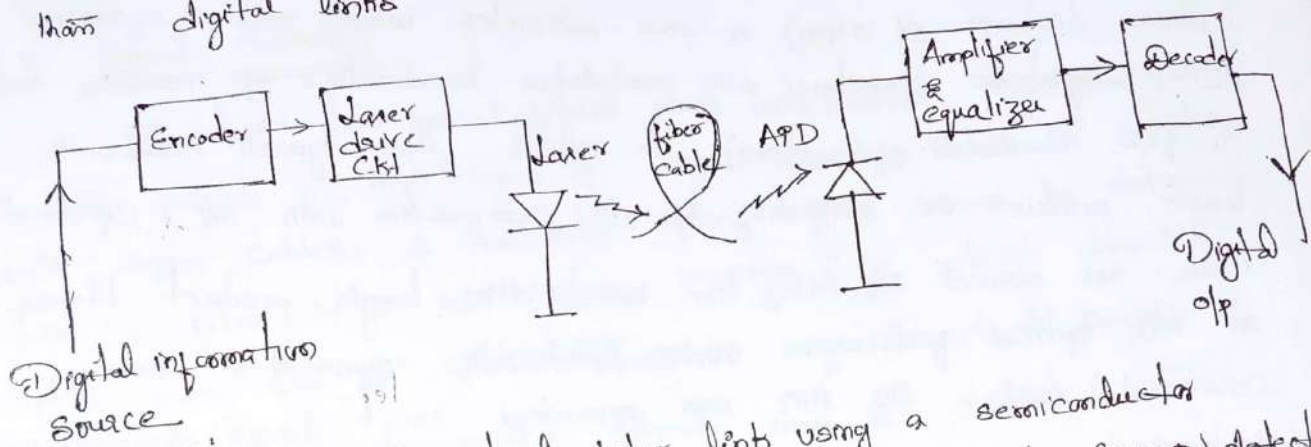 than digital links
Encoder
Laser
drive
Ckt
Laser
fiber
cable
APD
Amplifier
&
equalizer
Decoder
Digital
o/p
Digital information
source
digital link using a semiconductor